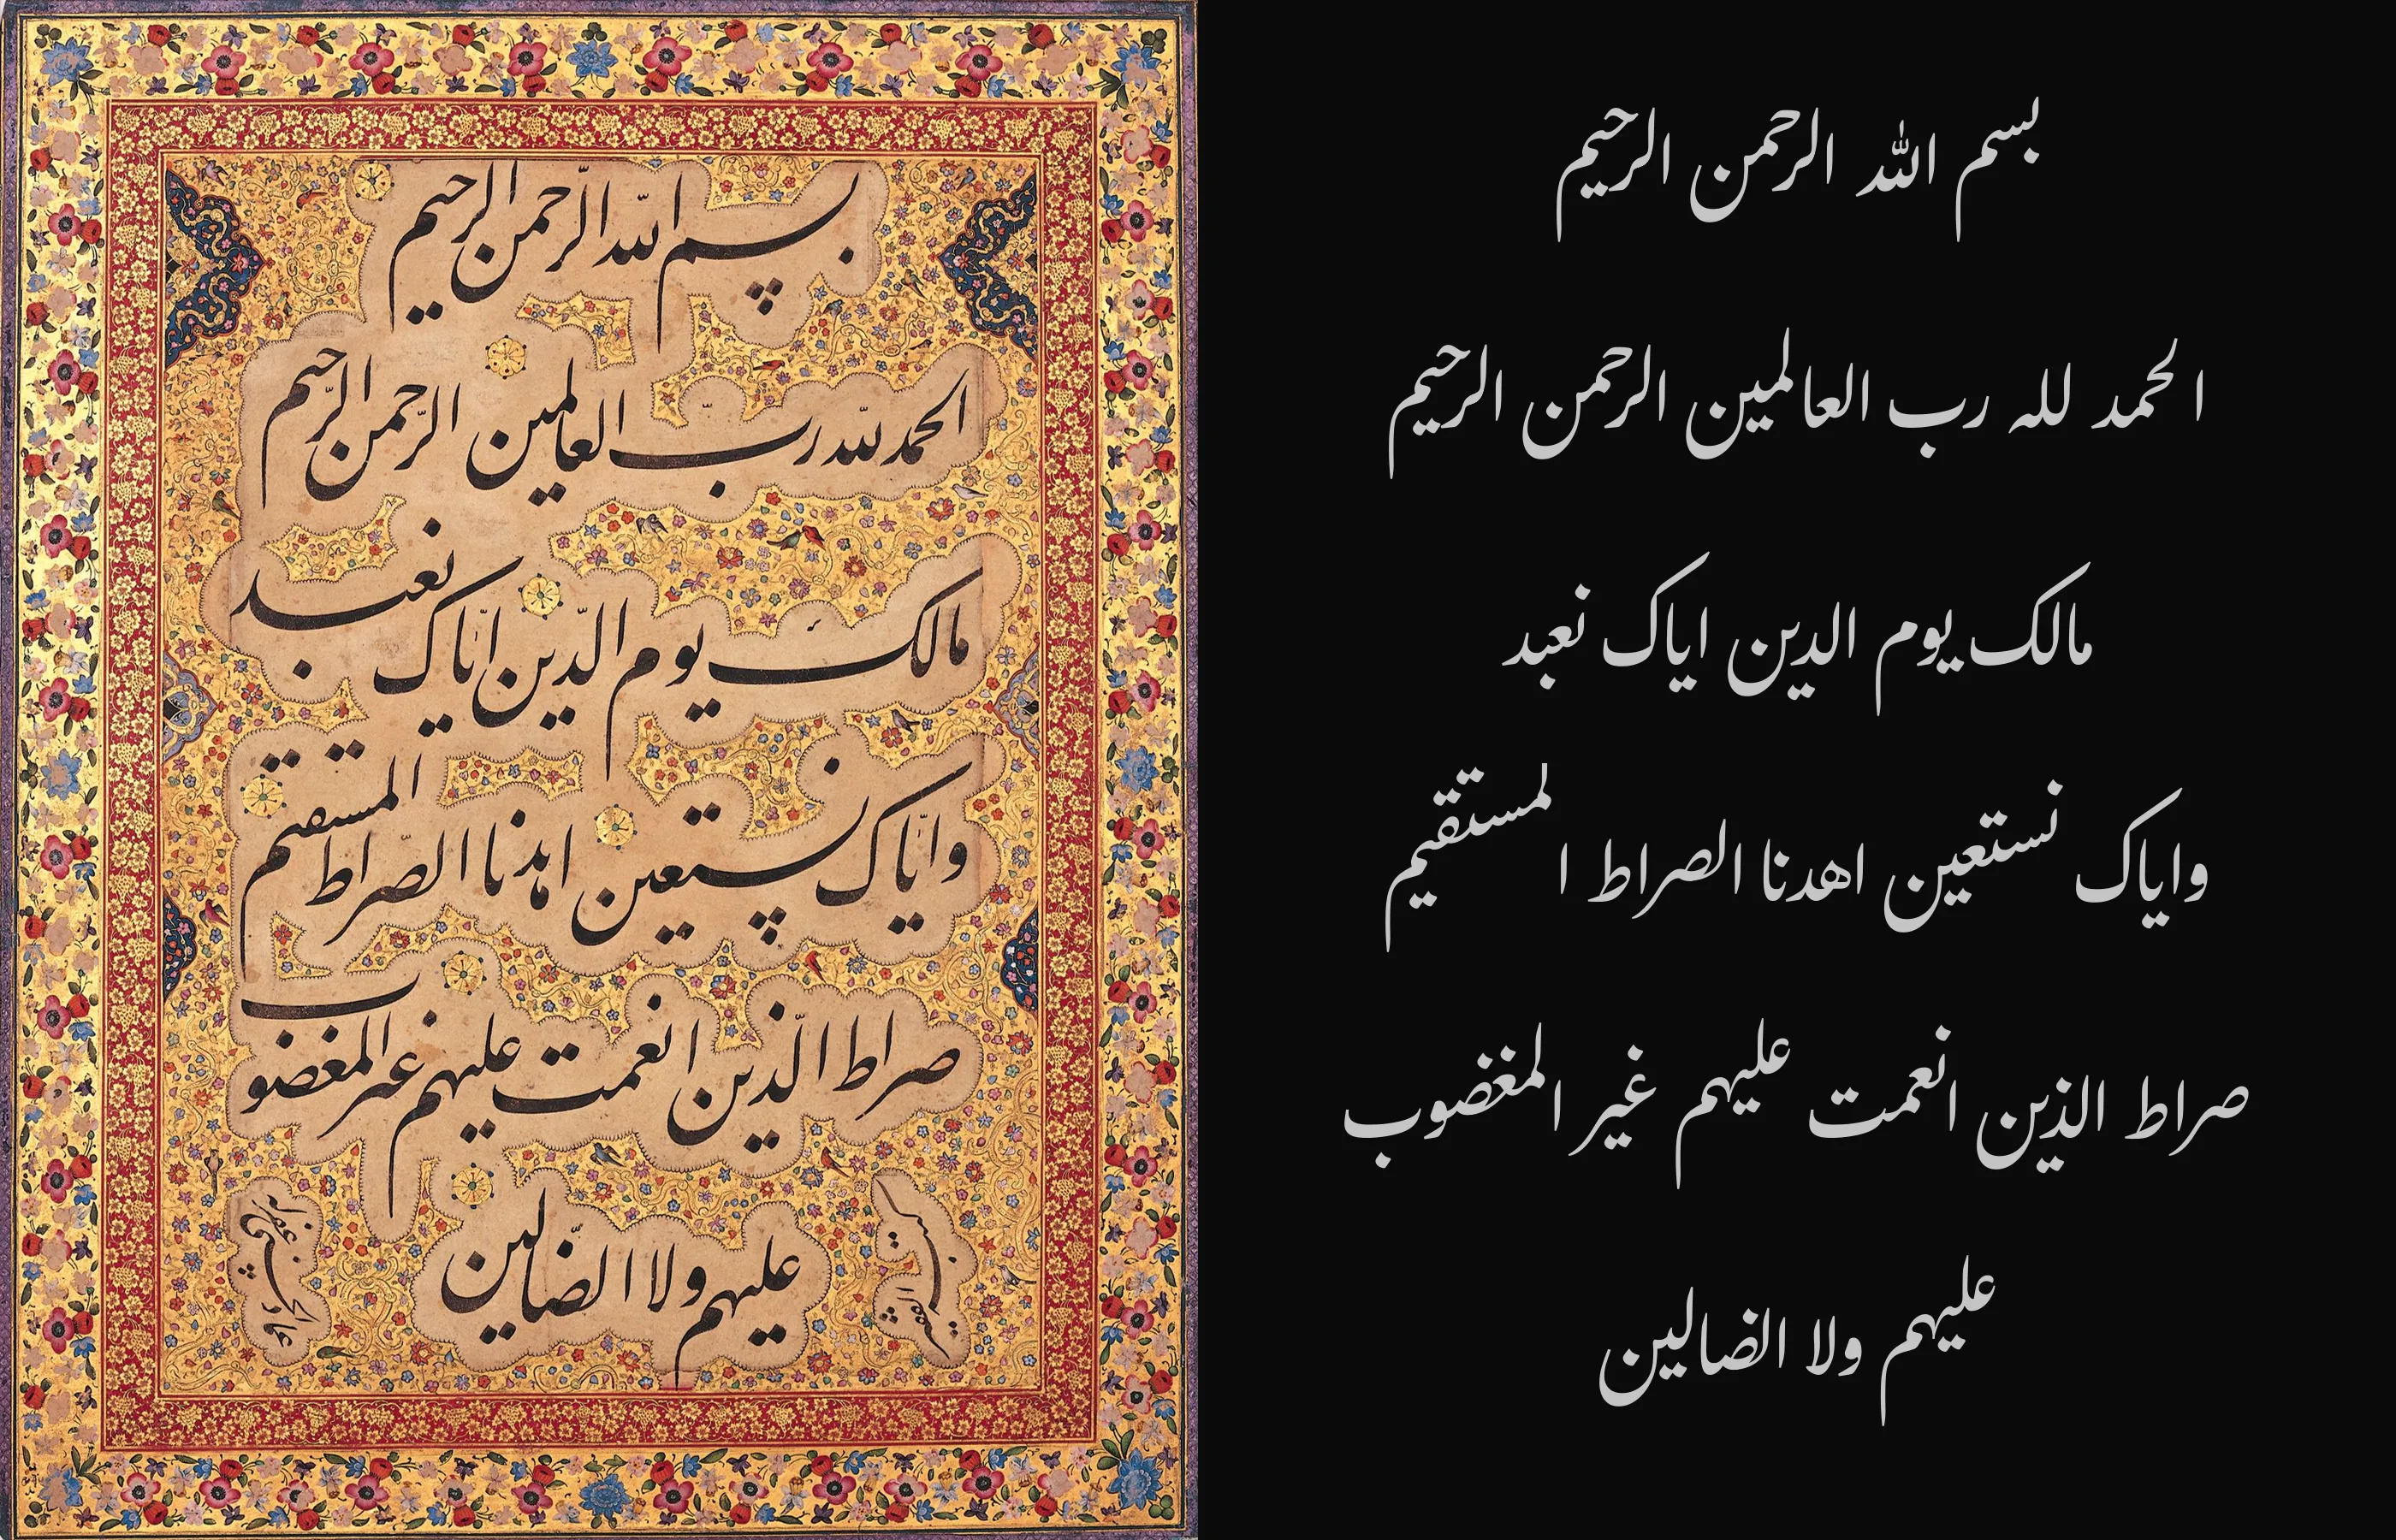 بسم الله الرحمن الرحيم
الحمد لله رب العالمين الرحمن الرحيم
مالک يوم الدين اياک نعبد
واياک نستعين اهدنا الصراط المستقيم
صراط الذين انعمت عليهم غير المغضوب
عليهم ولا الضالين
بسم الله الرحمن الرحيم
الحمد لله رب العالمين الرحمن الرحيم
مالک يوم الدين اياک نعبد
واياک نستعين اهدنا الصراط المستقيم
صراط الذين انعمت عليهم غير المغضوب
عليهم ولا الضالين